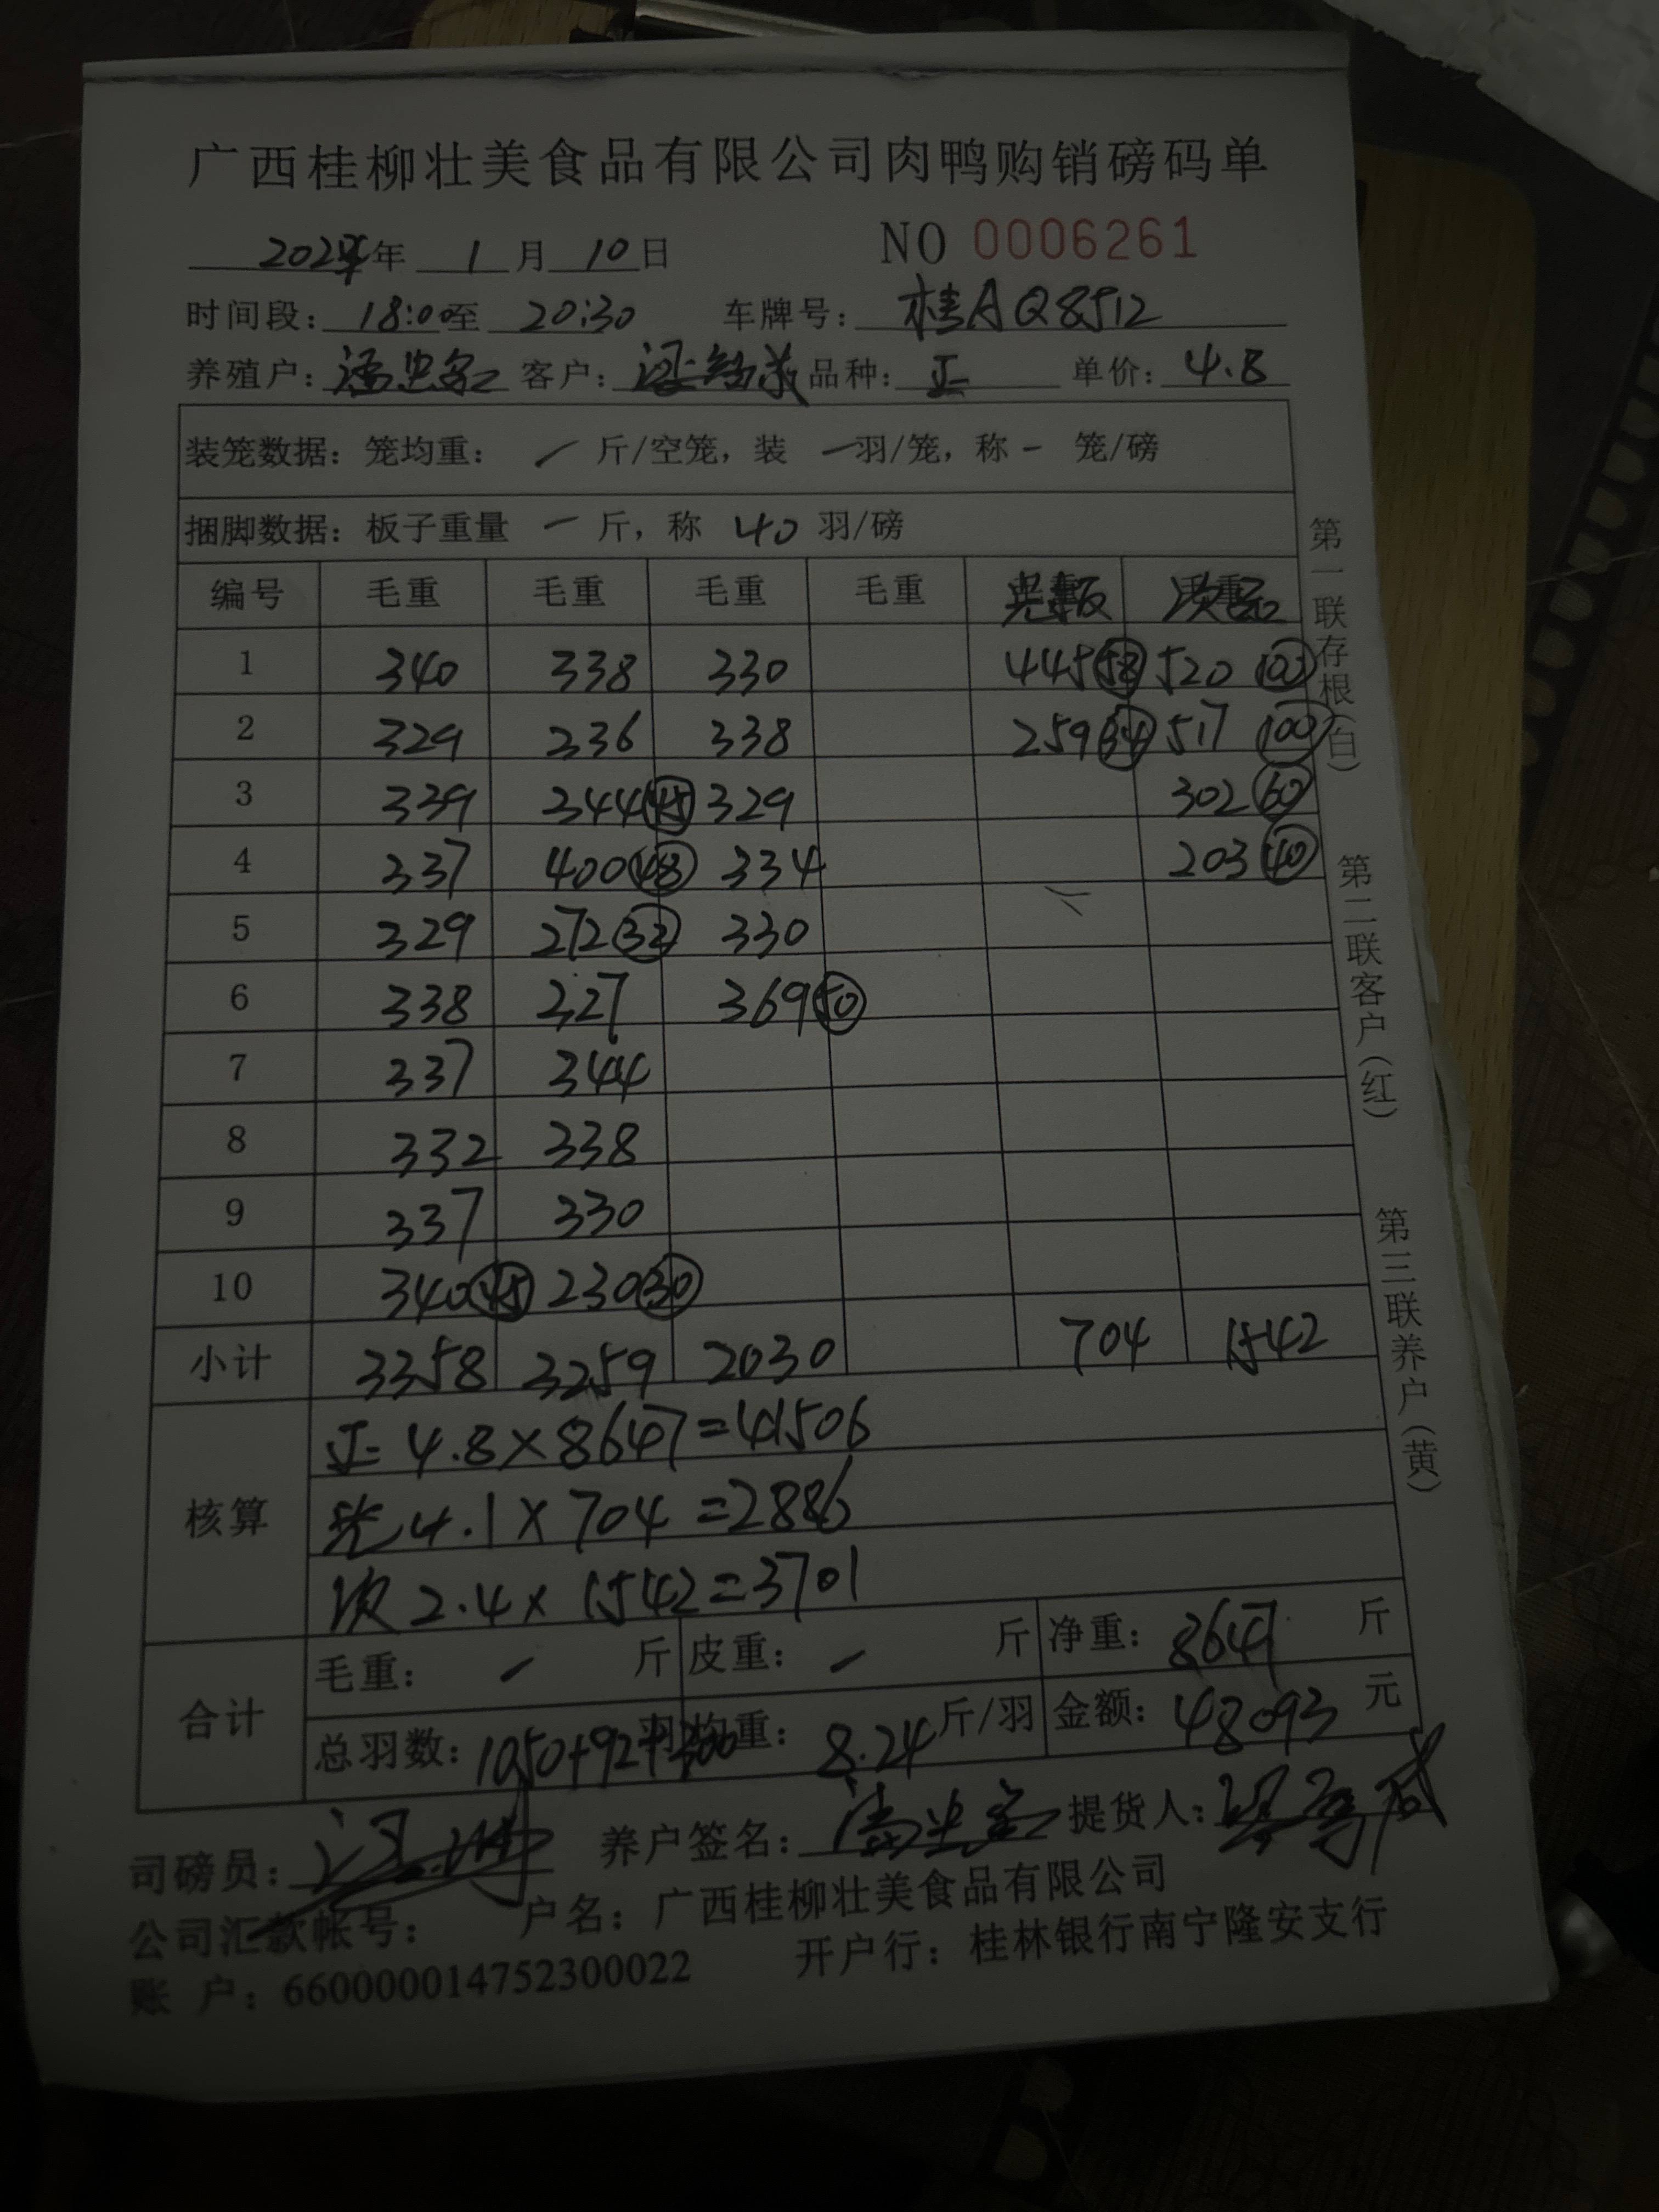 广西桂柳壮美食品有限公司肉鸭购销磅码单
年 1 月 10 日 NO 0006261
时间段: 18:00 至 20:30 车牌号: 桂AQ8512
养殖户: 客户: 品种: 正 单价: 4.8
装笼数据: 笼均重: 斤/空笼, 装 一 羽/笼, 称 - 笼/磅
捆脚数据: 板子重量 一 斤, 称 40 羽/磅
编号 毛重 毛重 毛重 毛重 次品
1 340 338 330 445 58 520 100
2 329 336 338 259 34 517 100
3 339 344 45 329 302 60
4 337 400 48 334 203 40
5 329 272 32 330
6 338 327 369 50
7 337 344
8 332 338
9 337 330
10 340 45 230 30
小计 3358 3259 2030 704 1542
核算 正 4.8×8647=41506
光 4.1×704=2886
次 2.4×1542=3701
合计 毛重: 斤 皮重: 斤 净重: 8647 斤
总羽数: 1050+92+300 均重: 8.24 斤/羽 金额: 48093 元
司磅员: 养户签名: 提货人:
公司汇款帐号: 户名: 广西桂柳壮美食品有限公司
账 户: 660000014752300022 开户行: 桂林银行南宁隆安支行
第一联存根(白) 第二联客户(红) 第三联养户(黄)